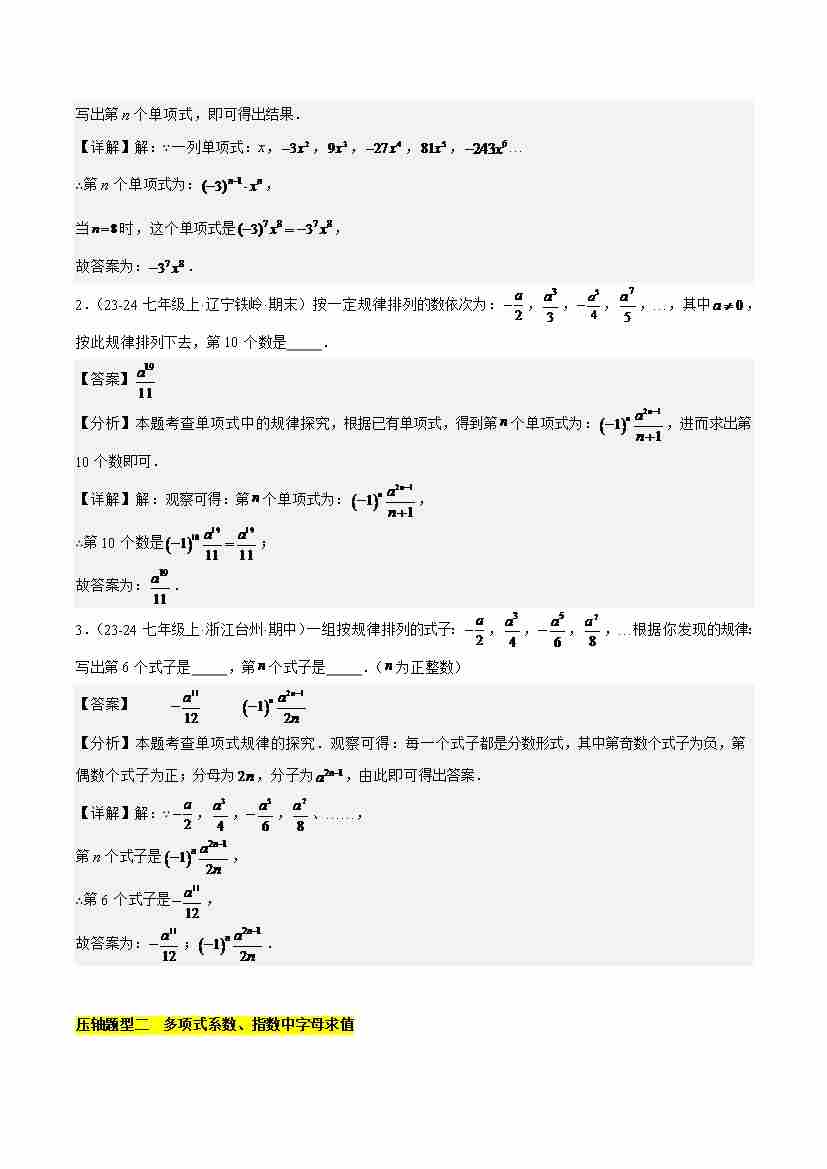 写出第 n 个单项式，即可得出结果．
【详解】解：∵一列单项式：x，−3x²，9x³，−27x⁴，81x⁵，−243x⁶…
∴第 n 个单项式为：(−3)ⁿ⁻¹·xⁿ，
当 n=8 时，这个单项式是(−3)⁷x⁸=−3⁷x⁸，
故答案为：−3⁷x⁸．
2．（23-24 七年级上·辽宁铁岭·期末）按一定规律排列的数依次为：−a/2，a³/3，−a⁵/4，a⁷/5，…，其中a≠0，
按此规律排列下去，第 10 个数是_____．
【答案】a¹⁹/11
【分析】本题考查单项式中的规律探究，根据已有单项式，得到第n个单项式为：(−1)ⁿ a²ⁿ⁻¹/(n+1)，进而求出第
10 个数即可．
【详解】解：观察可得：第n个单项式为：(−1)ⁿ a²ⁿ⁻¹/(n+1)，
∴第 10 个数是(−1)¹⁰ a¹⁹/11=a¹⁹/11；
故答案为：a¹⁹/11．
3．（23-24 七年级上·浙江台州·期中）一组按规律排列的式子：−a/2，a³/4，−a⁵/6，a⁷/8，…根据你发现的规律：
写出第 6 个式子是_____,第n个式子是_____.（n为正整数）
【答案】 −a¹¹/12 (−1)ⁿ a²ⁿ⁻¹/2n
【分析】本题考查单项式规律的探究．观察可得：每一个式子都是分数形式，其中第奇数个式子为负，第
偶数个式子为正；分母为2n，分子为a²ⁿ⁻¹，由此即可得出答案．
【详解】解：∵−a/2，a³/4，−a⁵/6，a⁷/8、……，
第 n 个式子是(−1)ⁿ a²ⁿ⁻¹/2n，
∴第 6 个式子是−a¹¹/12，
故答案为：−a¹¹/12；(−1)ⁿ a²ⁿ⁻¹/2n．
压轴题型二 多项式系数、指数中字母求值